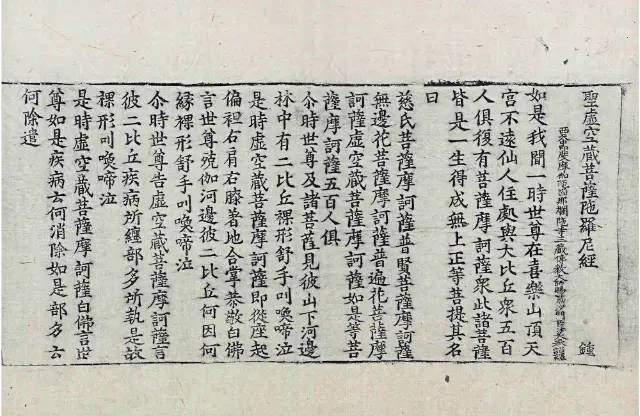 聖虛空藏菩薩陁羅尼經 鍾
如是我聞一時世尊在喜樂山頂天
宮不遠仙人住處與大比丘衆五百
人俱復有菩薩摩訶薩衆此諸菩薩
皆是一生得成無上正等菩提其名
曰
慈氏菩薩摩訶薩普賢菩薩摩訶薩
無邊花菩薩摩訶薩普遍花菩薩摩
訶薩虛空藏菩薩摩訶薩如是等菩
薩摩訶薩五百人俱
尒時世尊及諸菩薩見彼山下河邊
林中有二比丘裸形舒手叫喚啼泣
是時虛空藏菩薩摩訶薩即從座起
偏袒右肩右膝著地合掌恭敬白佛
言世尊殑伽河邊彼二比丘何因何
緣裸形舒手叫喚啼泣
尒時世尊告虛空藏菩薩摩訶薩言
彼二比丘疾病所纏部多所執是故
裸形叫喚啼泣
是時虛空藏菩薩摩訶薩白佛言世
尊如是疾病云何消除如是部多云
何除遣